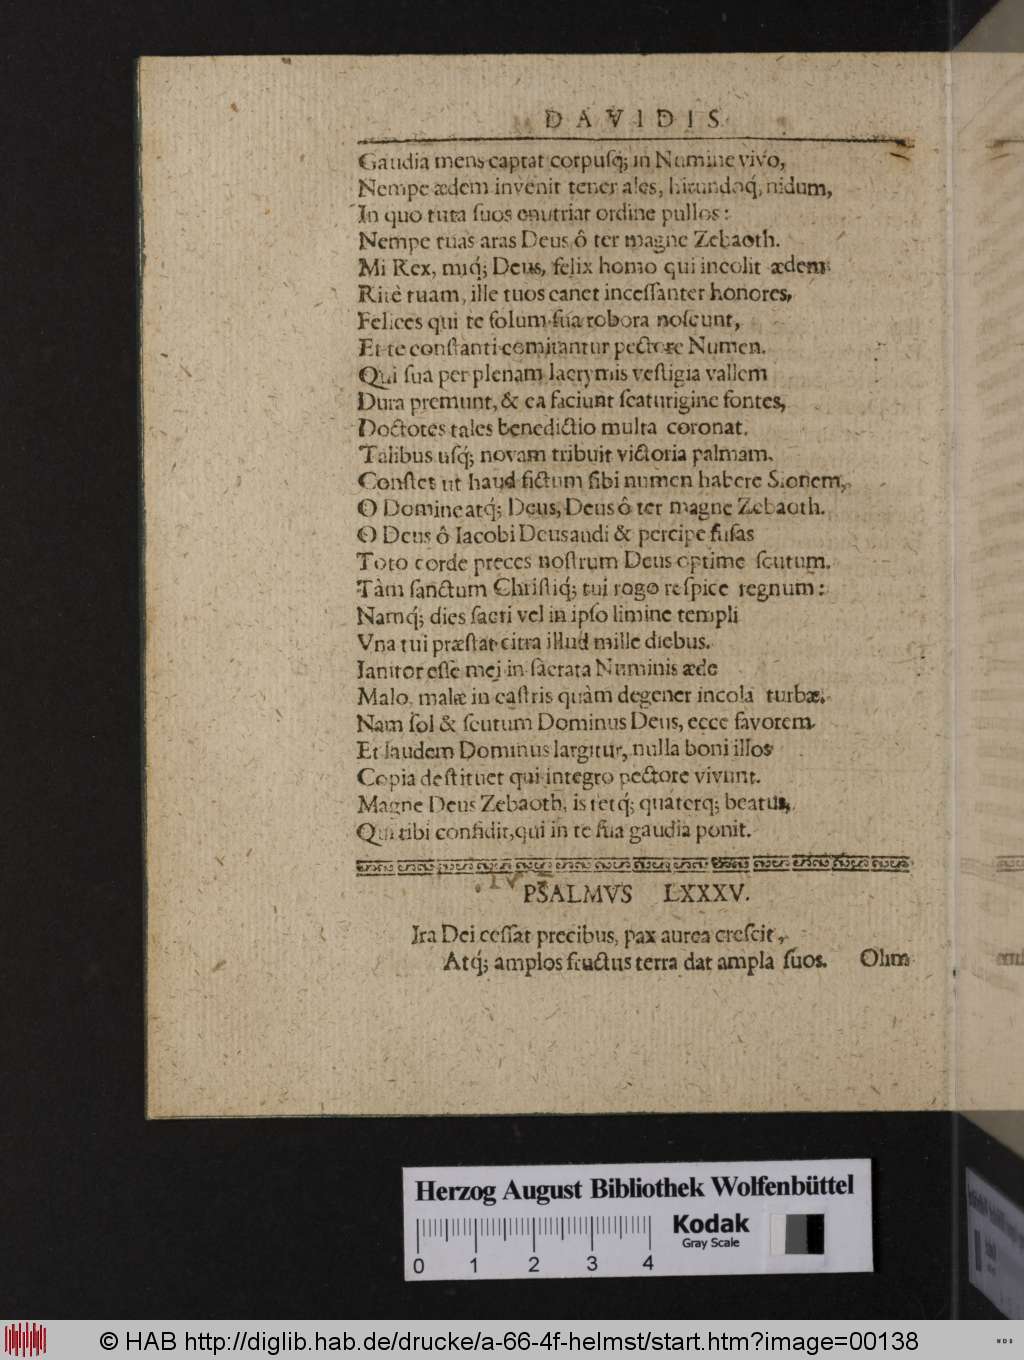 DAVIDIS
Gaudia mens captat corpuſq́; in Numine vivo,
Nempe ædem invenit tener ales, hirundoq́, nidum,
In quo tuta ſuos enutriat ordine pullos:
Nempe tuas aras Deus ô ter magne Zebaoth.
Mi Rex, miq́; Deus, felix homo qui incolit ædem
Ritè tuam, ille tuos canet inceſſanter honores,
Felices qui te ſolum ſua robora noſcunt,
Et te conſtanti comitantur pectore Numen.
Qui ſua per plenam lacrymis veſtigia vallem
Dura premunt, & ea faciunt ſcaturigine fontes,
Doctores tales benedictio multa coronat.
Talibus uſq́; novam tribuit victoria palmam.
Conſtet ut haud fictum ſibi numen habere Sionem,
O Domine atq́; Deus, Deus ô ter magne Zebaoth.
O Deus ô Iacobi Deus audi & percipe fuſas
Toto corde preces noſtrum Deus optime ſcutum.
Tàm ſanctum Chriſtiq́; tui rogo reſpice regnum:
Namq́; dies ſacri vel in ipſo limine templi
Vna tui præſtat citra illud mille diebus.
Ianitor eſſe mei in ſacrata Numinis æde
Malo, malæ in caſtris quàm degener incola turbæ.
Nam ſol & ſcutum Dominus Deus, ecce favorem
Et laudem Dominus largitur, nulla boni illos
Copia deſtituet qui integro pectore vivunt.
Magne Deus Zebaoth, is terq́; quaterq; beatus,
Qui tibi confidit, qui in te ſua gaudia ponit.
PSALMVS LXXXV.
Ira Dei ceſſat precibus, pax aurea creſcit,
Atq́; amplos fructus terra dat ampla ſuos. Olim
Herzog August Bibliothek Wolfenbüttel
Kodak
Gray Scale
0 1 2 3 4
© HAB http://diglib.hab.de/drucke/a-66-4f-helmst/start.htm?image=00138